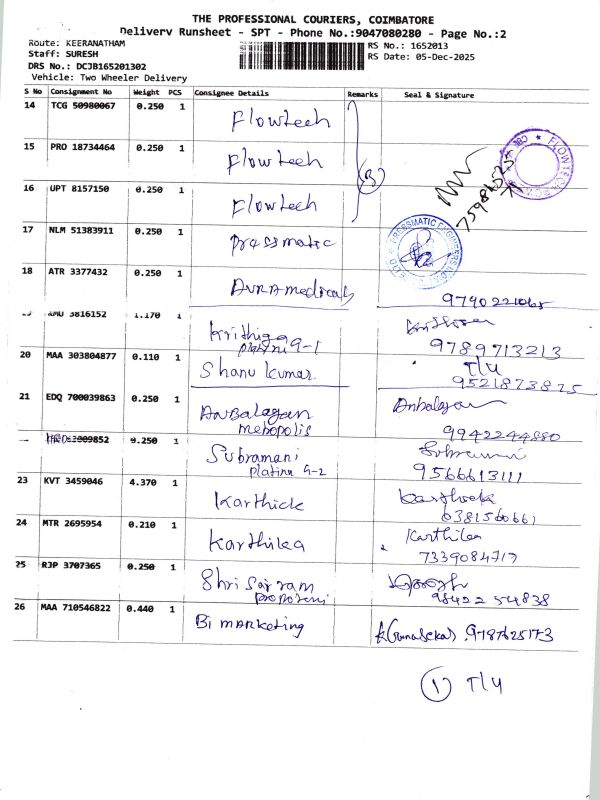 THE PROFESSIONAL COURIERS, COIMBATORE
Delivery Runsheet - SPT - Phone No.:9047080280 - Page No.:2
Route: KEERANATHAM
RS No.: 1652013
Staff: SURESH
RS Date: 05-Dec-2025
DRS No.: DCJB165201302
Vehicle: Two Wheeler Delivery
S No Consignment No Weight PCS Consignee Details Remarks Seal & Signature
14 TCG 50980067 0.250 1 Flowtech
15 PRO 18734464 0.250 1 Flowtech
(3)
16 UPT 8157150 0.250 1 Flowtech
17 NLM 51383911 0.250 1 pressmatic
18 ATR 3377432 0.250 1 AURA medicals
9740221065
3816152 1.170 1 Krithiga
platina G-1
9789713213
20 MAA 303804877 0.110 1 Shanu kumar. T/4
9521873825
21 EDQ 700039863 0.250 1 Anbalagan Anbalagan
metropolis 9942244880
0.250 1 Subramani
platina G-2 9566613111
23 KVT 3459046 4.370 1 Karthick Karthick
6381560661
24 MTR 2695954 0.210 1 Karthika Karthika
7339084717
25 RJP 3707365 0.250 1 Shri Sairam
98422 54838
26 MAA 710546822 0.440 1 Bi marketing 9787625173
1 T/4